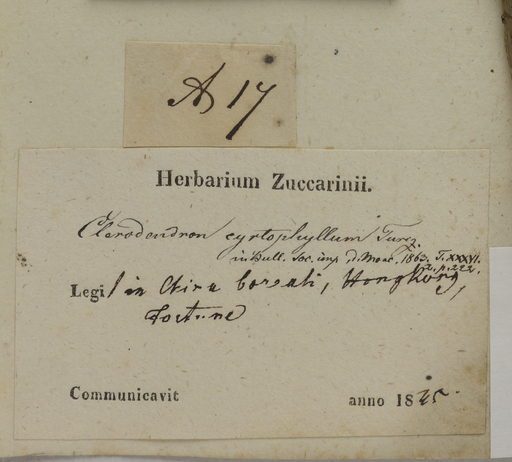 A 17
Herbarium Zuccarinii.
Clerodendron cyrtophyllum Turcz.
in Bull. Soc. imp. d. Mosc. 1863. T. XXXVI.
2. p. 222.
Legi in China boreali, Hongkong,
Fortune
Communicavit anno 1845.